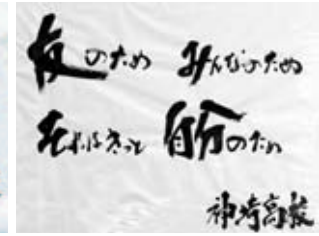 友のため みんなのため
それはきっと 自分のため
神埼高校